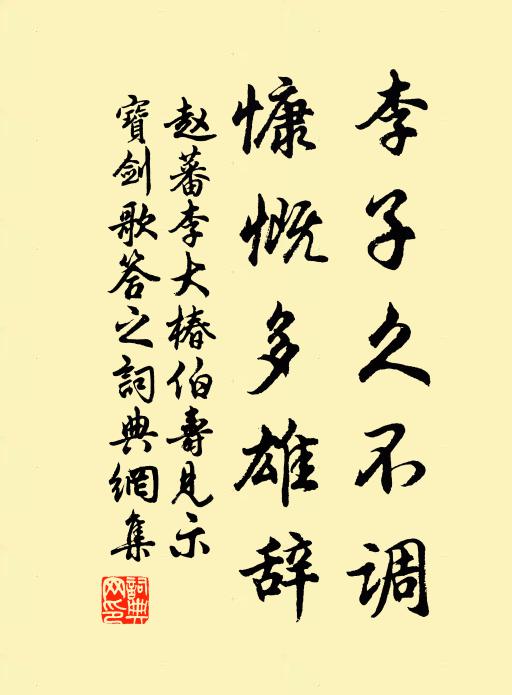 李子久不调
慷慨多雄辞
赵蕃李大椿伯寿见示
寶剑歌答之詞典網集
詞典
网印